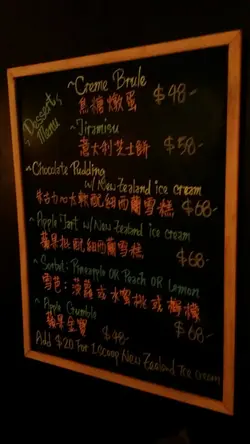 Dessert Menu
~ Creme Brule
焦糖燉蛋 $48-
~ Tiramisu
意大利芝士餅 $58-
~ Chocolate Pudding
w/ New Zealand ice cream
朱古力心太軟配紐西蘭雪糕 $68-
~ Apple Tart w/ New Zealand ice cream
蘋果批配紐西蘭雪糕 $68-
~ Sorbet: Pineapple OR Peach OR Lemon
雪芭: 菠蘿 或 水蜜桃 或 檸檬
$68-
~ Apple Crumble
蘋果金寶 $48-
Add $20 For 1 scoop New Zealand Ice Cream